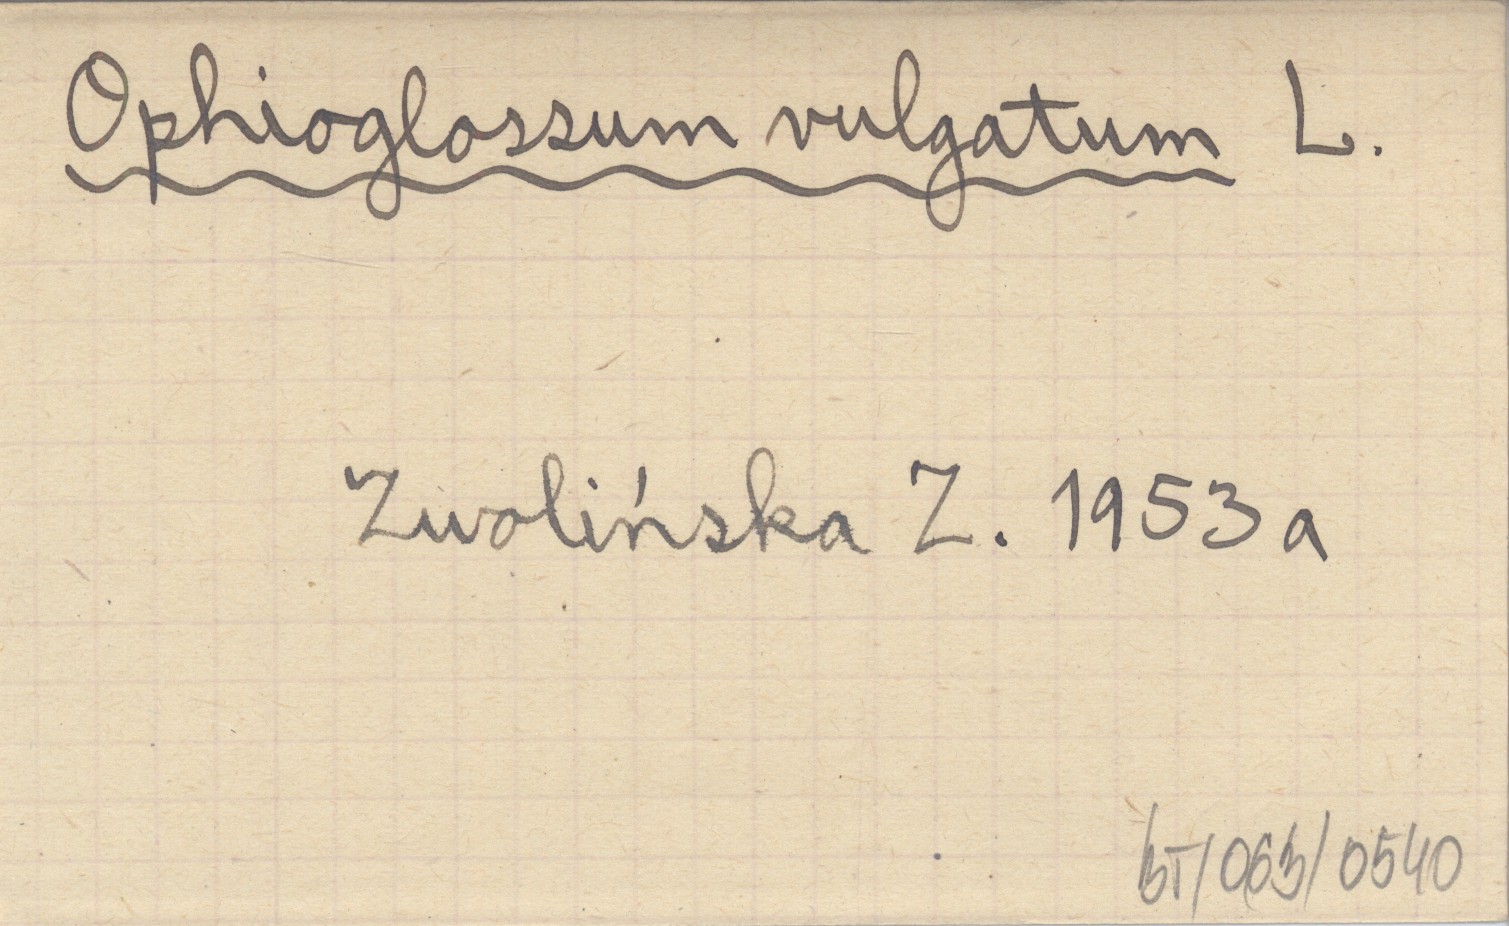 Ophioglossum vulgatum L.
Zwolińska Z. 1953a
bT/063/0540